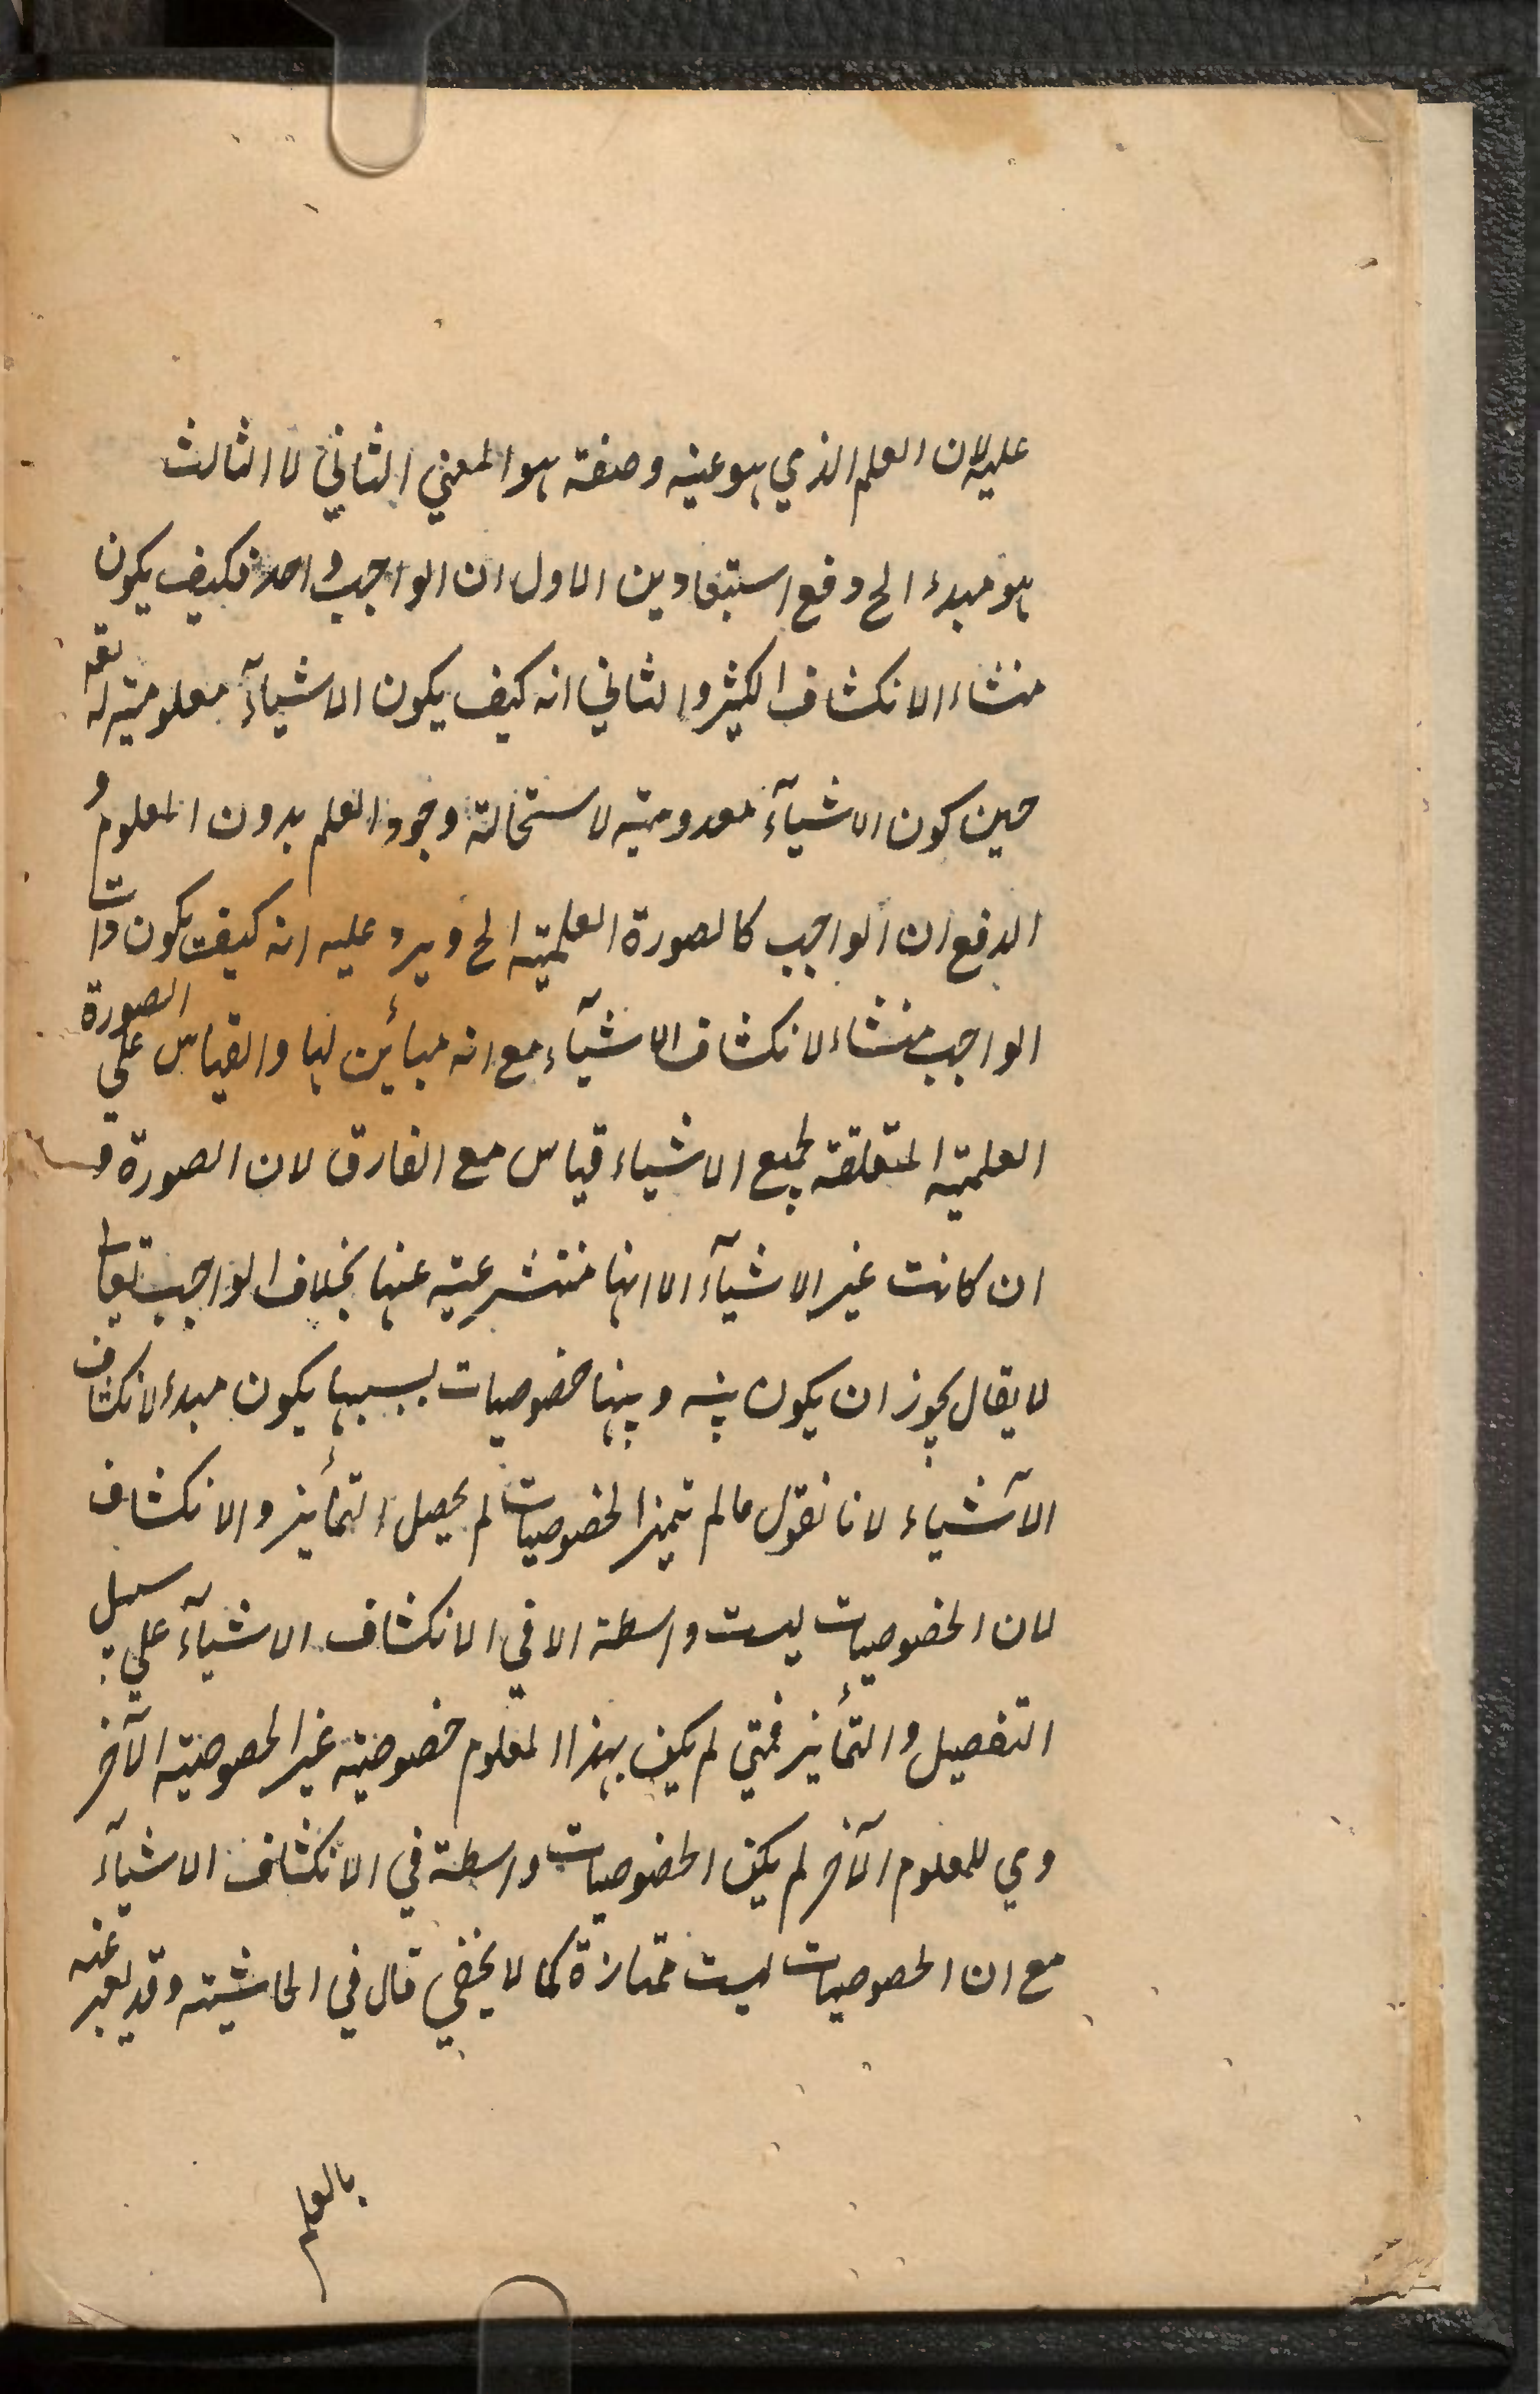 عليه لان العلم الذي هو عينه وصفته هو المعني الثاني لا الثالث
هو مبدء الخ دفع استبعادين الاول ان الواجب واحد فكيف يكون
منشاء الانكشاف الكثير والثاني انه كيف يكون الاشيآء معلومية له تعه
حين كون الاشيآء معدومية لاستحالة وجود العلم بدون المعلوم و
الدفع ان الواجب كالصورة العلمية الخ ويرد عليه انه كيف يكون ذات
الواجب منشاء لانكشاف الاشيآء مع انه مبائن لها والقياس علي الصورة
العلمية المتعلقة لجميع الاشياء قياس مع الفارق لان الصورة و
ان كانت غير الاشيآء الا انها منتشرعية عنها بخلاف الواجب تعا
لا يقال يجوز ان يكون بينه وبينها خصوصيات بسببها يكون مبدء لانكشاف
الآشياء لانا نقول مالم تميز الخصوصيات لم يحصل التمأيز والانكشاف
لان الخصوصيات ليست واسطة الا في الانكشاف الاشيآء علي سبيل
التفصيل والتمأيز فمتي لم يكن بهذا المعلوم خصوصية غير الخصوصية الآخر
وي للمعلوم الآخر لم يكن الخصوصيات واسطة في الانكشاف الاشيآء
مع ان الخصوصيات ليست ممتازة كما لا يخفي قال في الحاشية وقد يعبر عنه
بالعلم